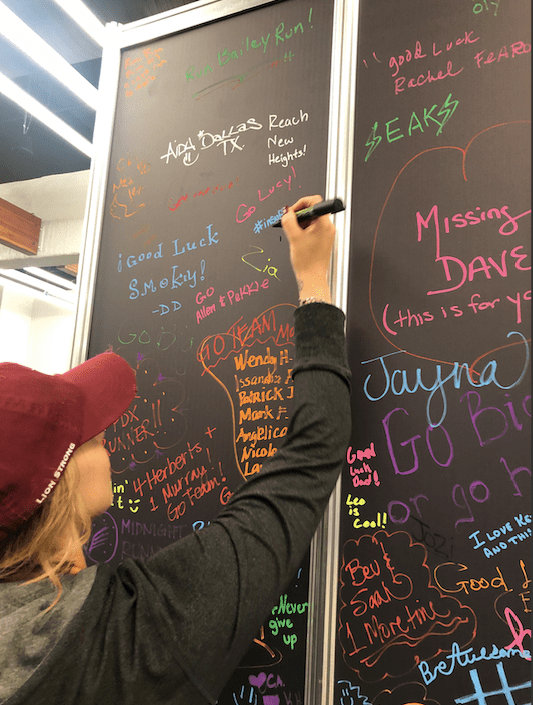 Run Bailey Run!
Aida Dallas
TX.
Reach
New
Heights!
Go Lucy!
Zia
¡Good Luck
Smoky!
-DD
GO
GO TEAM
Wendy H
Patrick J
Mark F
Angelica
Nicole
PDX
RUNNER!!
LION STRONG
4 Herberts +
1 Murray
Go Team!
MIDNIGHT
Never
give
up
oly
good Luck
Rachel
SEAK
Missing
DAVE
(this is for
Jayna
GO
or go
Good
Luck
Dad!
Leo
is
Cool!
Jozi
I LOVE
AND
Bev &
Sean
1 More
Good
Be Awesome
#